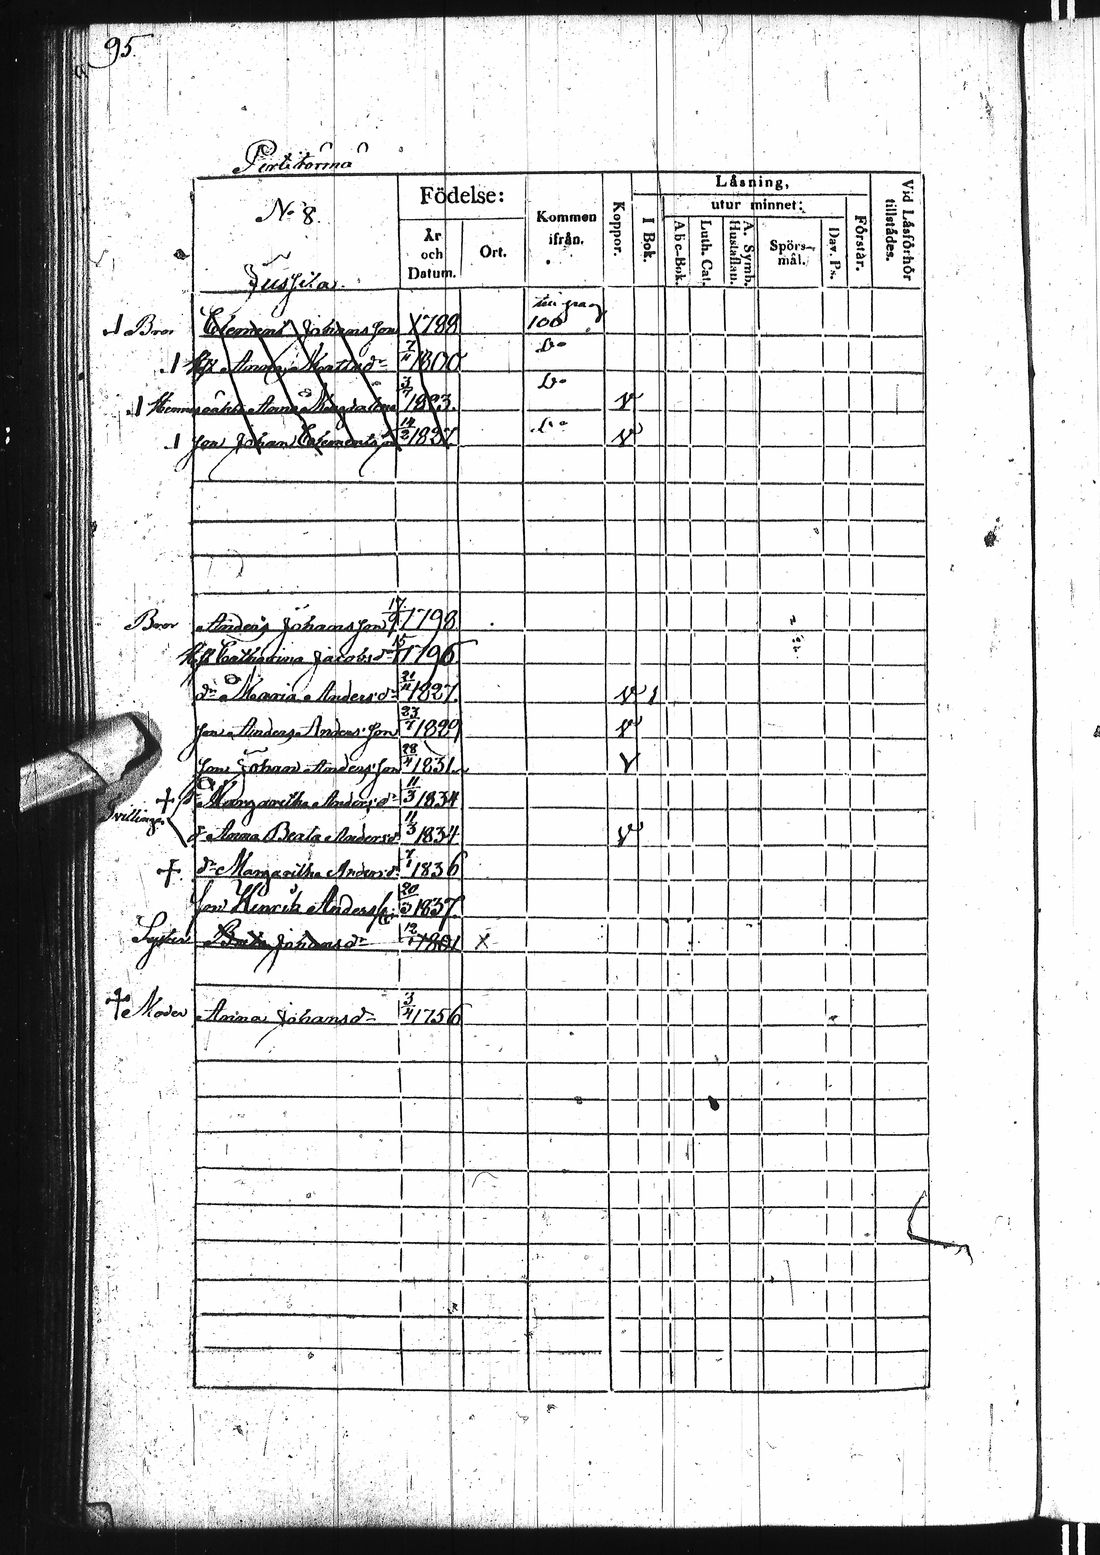 95.
Perttörmä
No 8.
Jussila
Födelse:
År och Datum.
Ort.
Kommen ifrån.
Koppor.
Läsning,
I Bok.
utur minnet:
Abc-Bok.
Luth. Cat.
A. Symb. Hustaflan.
Spörs-mål.
Dav. Ps.
Förstår.
Vid Läsförhör tillstådes.
Bror Clemens Johansson 1788 100
Hu Anna Mattsdr 7/11 1800 Do
Hennes Anna Magdalena 3/7 1823. Do v
Son Johan Clementsson 14/2 1827. Do v
Bror Anders Johansson 17/9 1798
Hu Catharina Jacobsdr 15/11 1796
dr Maria Andersdr 21/11 1827. v
Son Anders Andersson 23/7 1829 v
Son Johan Andersson 28/11 1831. v
Tvillingar
+ dr Margaretha Andersdr 11/3 1834
dr Anna Beata Andersdr 11/3 1834 v
+ dr Margaretha Andersdr 7/1 1836
Son Henrik Anderss. 20/3 1837.
Syster Johansdr 12/1 1801 X
+ Moder Anna Johansdr 3/11 1756